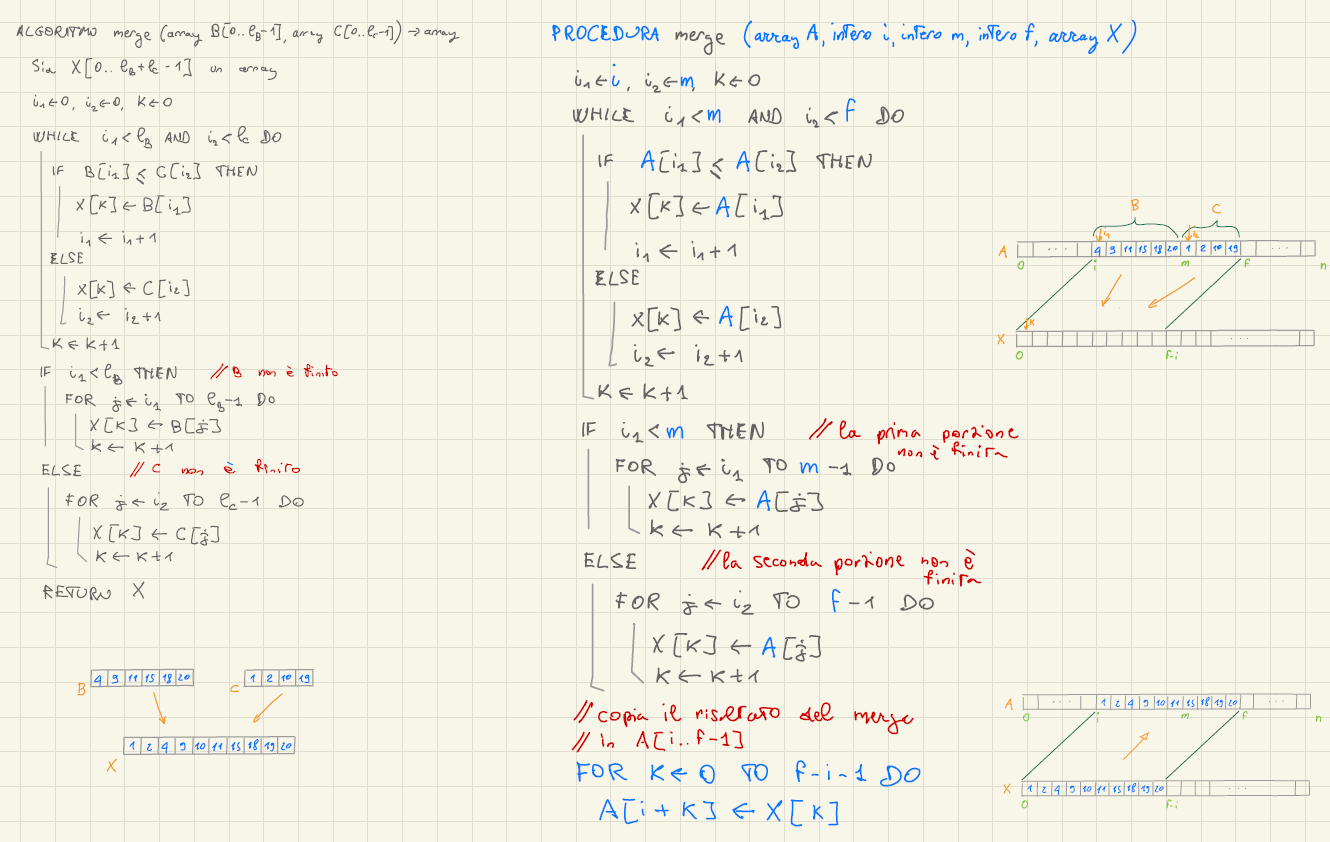 ALGORITMO merge (array B[0..lB-1], array C[0..lC-1]) → array
Sia X[0..lB+lC-1] un array
i1←0, i2←0, K←0
WHILE i1<lB AND i2<lC DO
IF B[i1] ≤ C[i2] THEN
X[K] ← B[i1]
i1 ← i1+1
ELSE
X[K] ← C[i2]
i2 ← i2+1
K ← K+1
IF i1<lB THEN // B non è finito
FOR j←i1 TO lB-1 DO
X[K] ← B[j]
K ← K+1
ELSE // C non è finito
FOR j←i2 TO lC-1 DO
X[K] ← C[j]
K ← K+1
RETURN X
B 4 9 11 15 18 20
C 1 2 10 19
X 1 2 4 9 10 11 15 18 19 20
PROCEDURA merge (array A, intero i, intero m, intero f, array X)
i1←i, i2←m, K←0
WHILE i1<m AND i2<f DO
IF A[i1] ≤ A[i2] THEN
X[K] ← A[i1]
i1 ← i1+1
ELSE
X[K] ← A[i2]
i2 ← i2+1
K ← K+1
IF i1<m THEN // la prima porzione
non è finita
FOR j←i1 TO m-1 DO
X[K] ← A[j]
K ← K+1
ELSE // la seconda porzione non è
finita
FOR j←i2 TO f-1 DO
X[K] ← A[j]
K ← K+1
// copia il risultato del merge
// in A[i..f-1]
FOR K←0 TO f-i-1 DO
A[i+K] ← X[K]
B C
i1 i2
A ... 4 9 11 15 18 20 1 2 10 19 ...
0 i m f n
K
X ...
0 f-i
A ... 1 2 4 9 10 11 15 18 19 20 ...
0 i m f n
X 1 2 4 9 10 11 15 18 19 20 ...
0 f-i